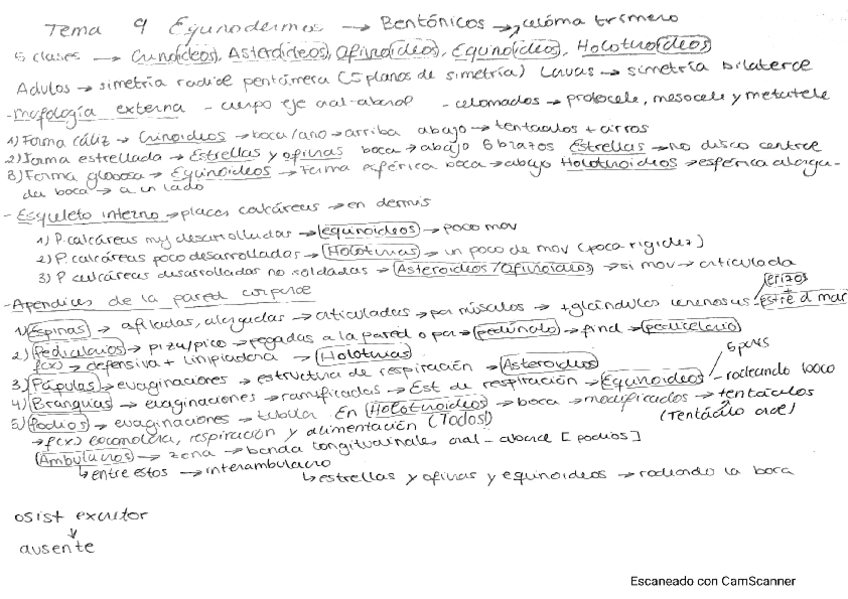 Tema 9 Equinodermos → Bentónicos → celóma trímero
5 clases → Crinoideos, Asteroideos, Ofiuroideos, Equinoideos, Holoturoideos
Adultos → simetría radial pentámera (5 planos de simetría) Larvas → simetría bilateral
- Morfología externa - cuerpo eje oral-aboral - celomados → protocele, mesocele y metatele
1) Forma cáliz → Crinoideos → boca/ano → arriba abajo → tentaculos + cirros
2) Forma estrellada → Estrellas y ofiuras boca → abajo 5 brazos Estrellas → no disco central
3) Forma globosa → Equinoideos → forma esférica boca → abajo Holoturoideos → esférica alarga-
da boca → a un lado
- Esqueleto interno → placas calcáreas → en dermis
1) P. calcáreas muy desarrolladas → equinoideos → poco mov
2) P. calcáreas poco desarrolladas → Holoturias → un poco de mov (poca rigidez)
3) P calcáreas desarrolladas no soldadas → Asteroideos / ofiuroideos → si mov → articulada
- Apendices de la pared corporal
1) Espinas → afiladas, alargadas → articuladas → por músculos → + glándulas venenosas erizos + estre d mar
2) Pedicelarios → pinza/pico → pegadas a la pared o por → pedúnculo → final → pedicelario
f(x) → defensiva + limpiadora → Holoturias
3) Pápulas → evaginaciones → estructura de respiración → Asteroideos 5 pares
4) Branquias → evaginaciones → ramificadas → Est de respiración → Equinoideos - rodeando boca
5) Podios → evaginaciones → tubular. En Holoturoideos → boca → modificados → tentáculos
→ f(x) locomotora, respiración y alimentación (Todos!) (Tentáculo oral)
Ambulacros → zona → banda longitudinales oral-aboral [podios]
↳ entre estos → interambulacro
↳ estrellas y ofiuras y equinoideos → rodeando la boca
osist excretor
↓
ausente
Escaneado con CamScanner